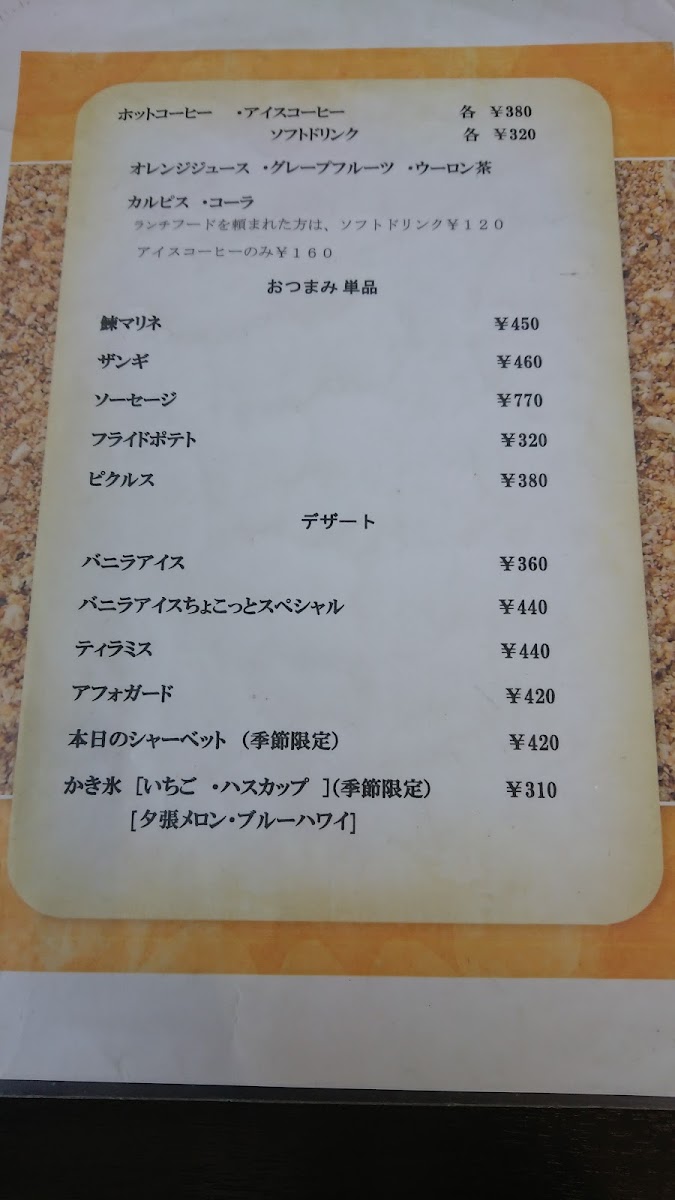 ホットコーヒー ・アイスコーヒー 各 ¥380
ソフトドリンク 各 ¥320
オレンジジュース ・グレープフルーツ ・ウーロン茶
カルピス ・コーラ
ランチフードを頼まれた方は、ソフトドリンク¥120
アイスコーヒーのみ¥160
おつまみ 単品
鰊マリネ ¥450
ザンギ ¥460
ソーセージ ¥770
フライドポテト ¥320
ピクルス ¥380
デザート
バニラアイス ¥360
バニラアイスちょこっとスペシャル ¥440
ティラミス ¥440
アフォガード ¥420
本日のシャーベット (季節限定) ¥420
かき氷 [いちご ・ハスカップ ](季節限定) ¥310
[夕張メロン・ブルーハワイ]